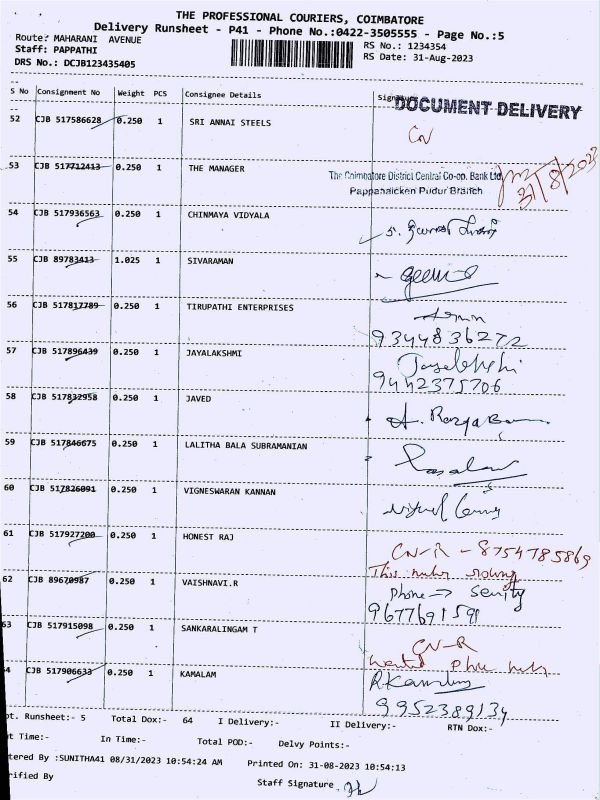 THE PROFESSIONAL COURIERS, COIMBATORE
Delivery Runsheet - P41 - Phone No.:0422-3505555 - Page No.:5
Route: MAHARANI AVENUE
RS No.: 1234354
Staff: PAPPATHI
RS Date: 31-Aug-2023
DRS No.: DCJB123435405
S No Consignment No Weight PCS Consignee Details Signature
DOCUMENT DELIVERY
52 CJB 517586628 0.250 1 SRI ANNAI STEELS
CN
53 CJB 517712413 0.250 1 THE MANAGER
The Coimbatore District Central Co-op. Bank Ltd
Pappanaicken Pudur Branch
31/8/2023
54 CJB 517936563 0.250 1 CHINMAYA VIDYALA
55 CJB 89783413 1.025 1 SIVARAMAN
56 CJB 517817789 0.250 1 TIRUPATHI ENTERPRISES
9344836272
57 CJB 517896439 0.250 1 JAYALAKSHMI
9442375706
58 CJB 517832958 0.250 1 JAVED
59 CJB 517846675 0.250 1 LALITHA BALA SUBRAMANIAN
60 CJB 517826091 0.250 1 VIGNESWARAN KANNAN
61 CJB 517927200 0.250 1 HONEST RAJ
CN-R - 8754785869
This
62 CJB 89670987 0.250 1 VAISHNAVI.R
phone →
9677691591
63 CJB 517915098 0.250 1 SANKARALINGAM T
CN-R
64 CJB 517906633 0.250 1 KAMALAM
9952389134
ot. Runsheet:- 5 Total Dox:- 64 I Delivery:- II Delivery:- RTN Dox:-
ut Time:- In Time:- Total POD:- Delvy Points:-
tered By :SUNITHA41 08/31/2023 10:54:24 AM Printed On: 31-08-2023 10:54:13
rified By Staff Signature